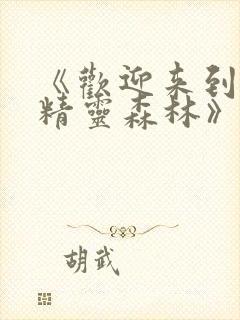 《歡迎来到
精靈森林》
胡武